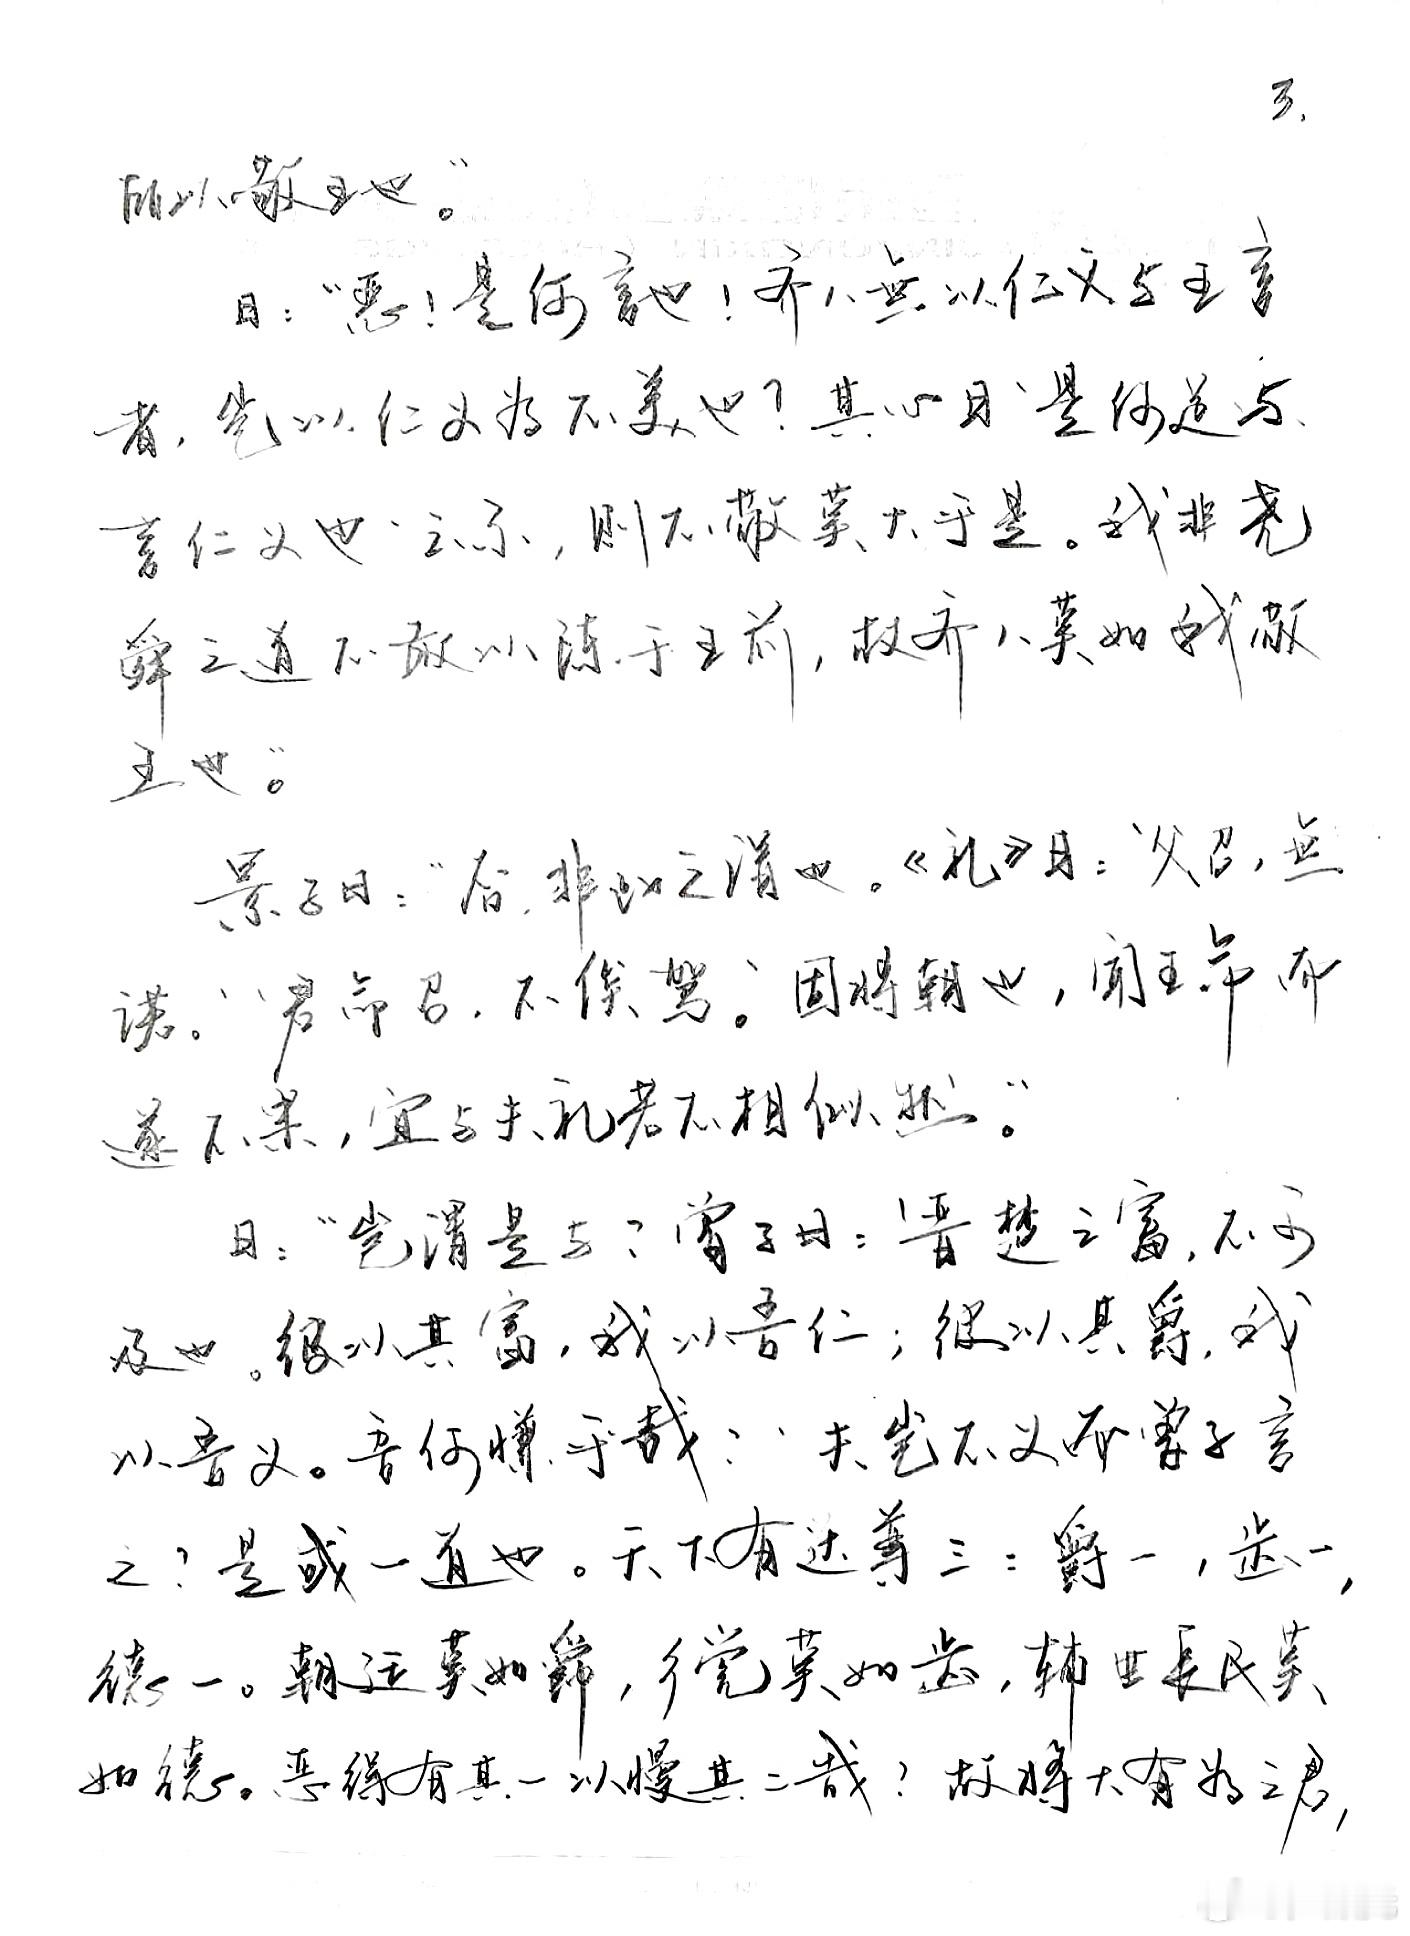 3.
所以敬王也”。
曰：“恶！是何言也！齐人無以仁义与王言
者，岂以仁义为不美也？其心曰‘是何足与
言仁义也’云尔，则不敬莫大乎是。我非尧
舜之道不敢以陈于王前，故齐人莫如我敬
王也”。
景子曰：“否，非此之谓也。《礼》曰：‘父召，無
诺。’‘君命召，不俟驾。’固将朝也，闻王命而
遂不果，宜与夫礼若不相似然”。
曰：“岂谓是与？曾子曰：‘晋楚之富，不可
及也。彼以其富，我以吾仁；彼以其爵，我
以吾义。吾何慊乎哉？’夫岂不义而曾子言
之？是或一道也。天下有达尊三：爵一，齿一，
德一。朝廷莫如爵，乡党莫如齿，辅世長民莫
如德。恶得有其一以慢其二哉？故将大有为之君，